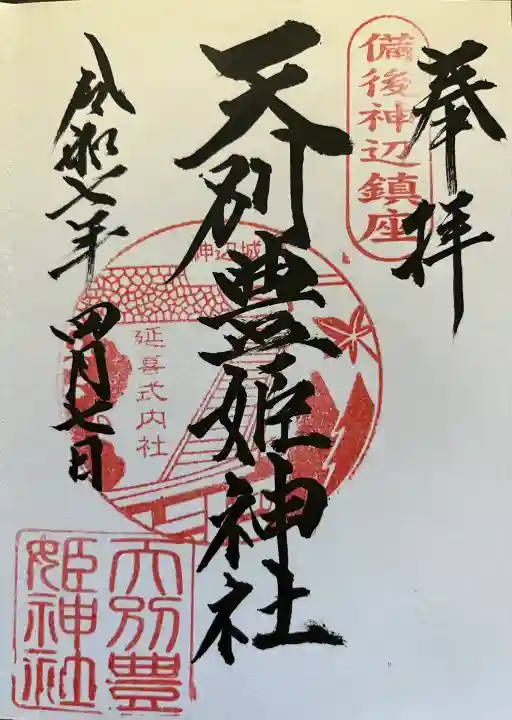 奉拝
備後神辺鎮座
天別豊姫神社
神辺城
延喜式内社
天別豊
姫神社
令和七年 四月七日